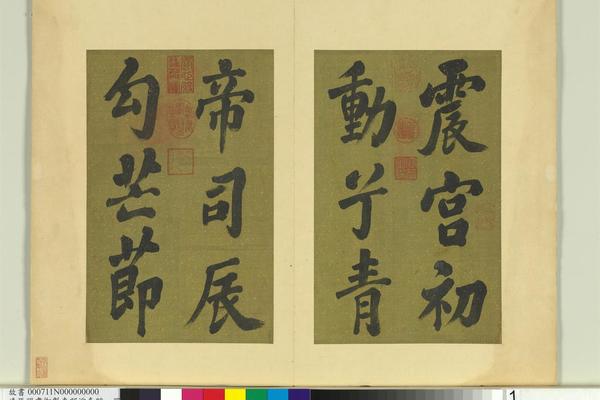 震宮初
動兮青
帝司辰
勾芒節
故書 000711N000000000
1